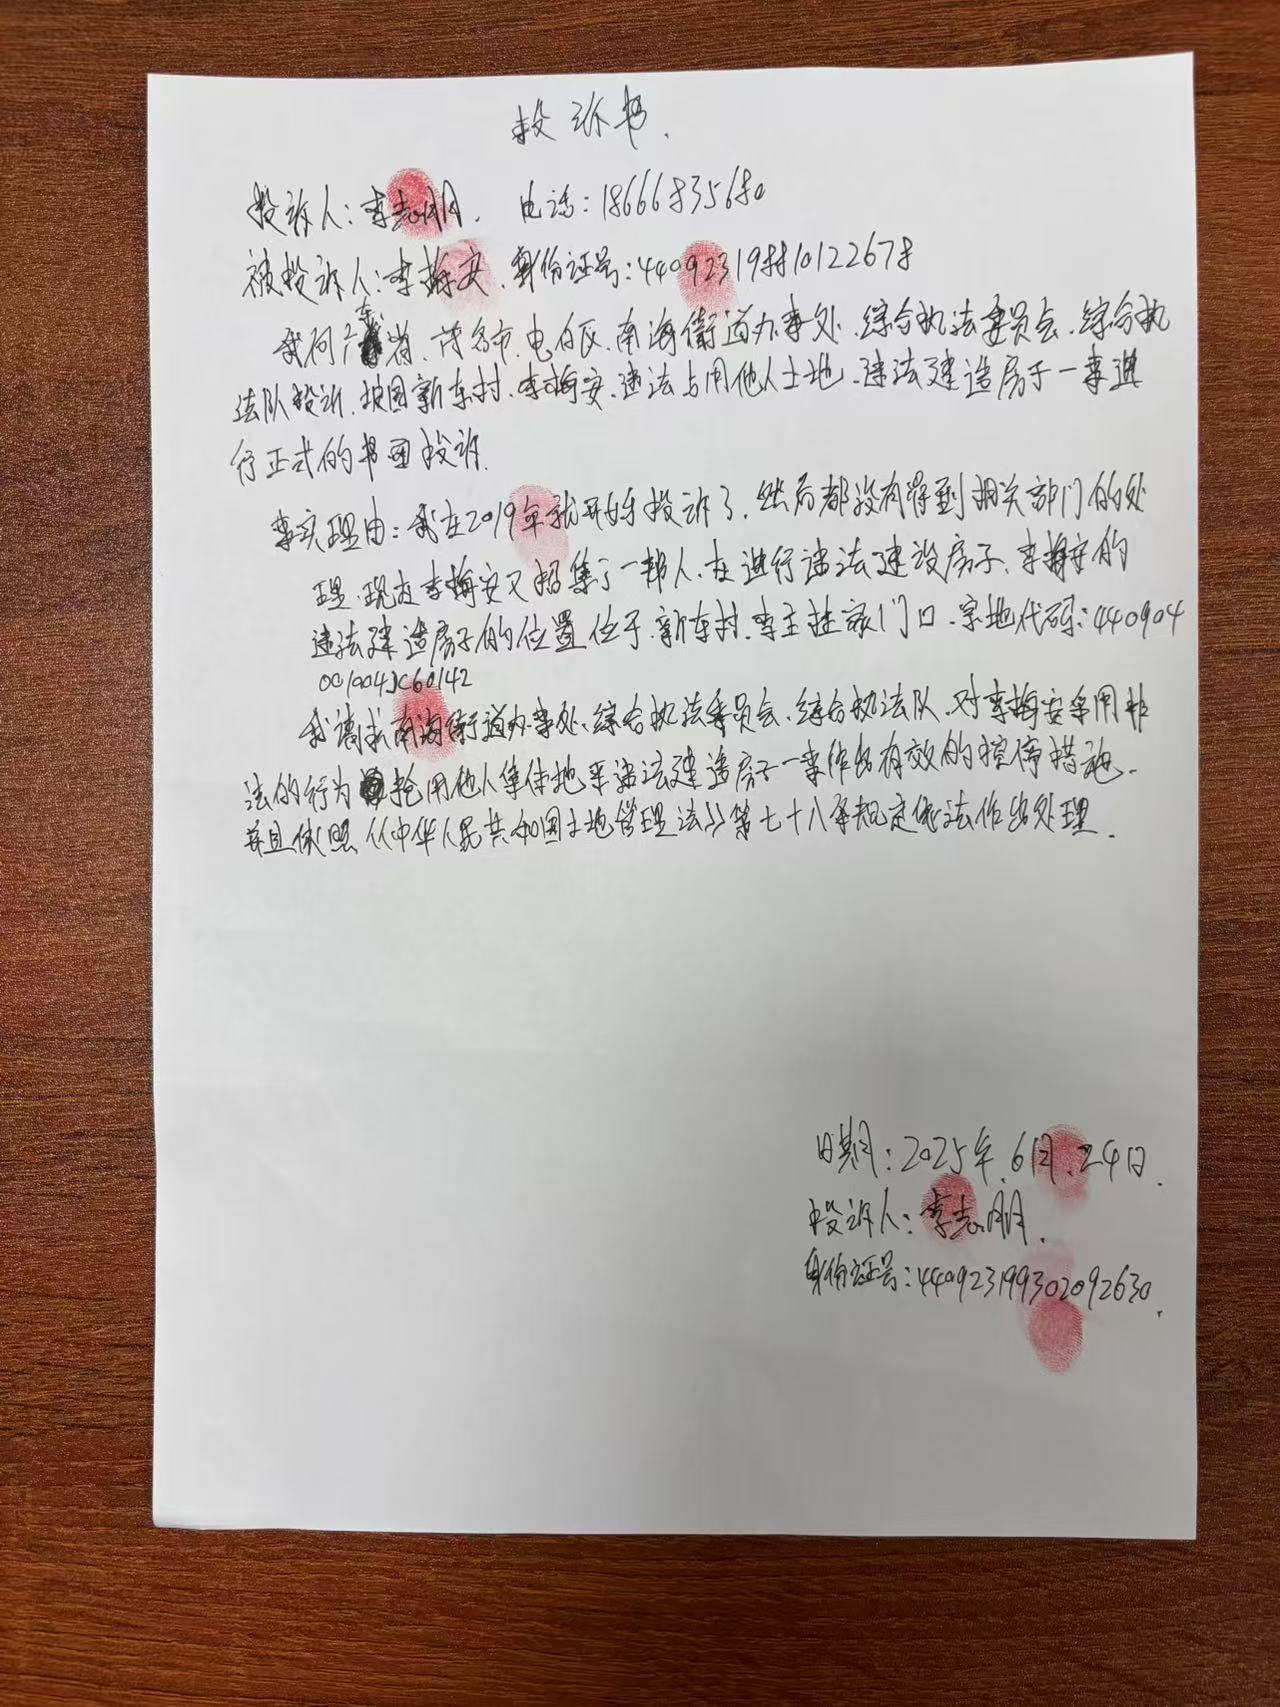 投诉书.
投诉人:李志明. 电话:18666835680
被投诉人:李梅安.身份证号:440923198810122678
我向广东省.茂名市.电白区.南海街道办事处.综合执法委员会.综合执
法队投诉.
新车村.李梅安.违法占用他人土地.违法建造房子一事进
行正式的书面投诉.
事实理由:我在2019年就开始投诉了.然后都没有得到相关部门的处
理.现在李梅安又招集了一帮人.在进行违法建设房子.李梅安的
违法建造房子的位置位于.新车村.李主挂家门口.宗地代码:440904
001004JC60142
我请求南海街道办事处.综合执法委员会.综合执法队.对李梅安采用非
法的行为抢用他人集体地来违法建造房子一事作出有效的控停措施.
并且依照《中华人民共和国土地管理法》第七十八条规定依法作出处理.
日期:2025年.6月.24日.
投诉人:李志明.
身份证号:440923199302092630.